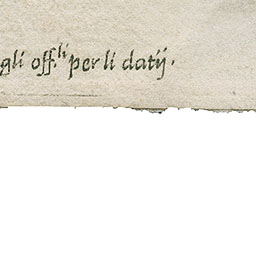 gli off.li per li datij.